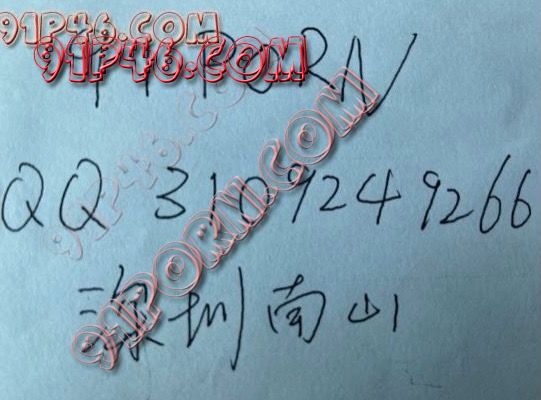 91P46.COM
91P46.COM
91 PORN
QQ 3109249266
深圳南山
91PORN.COM
91P46.COM